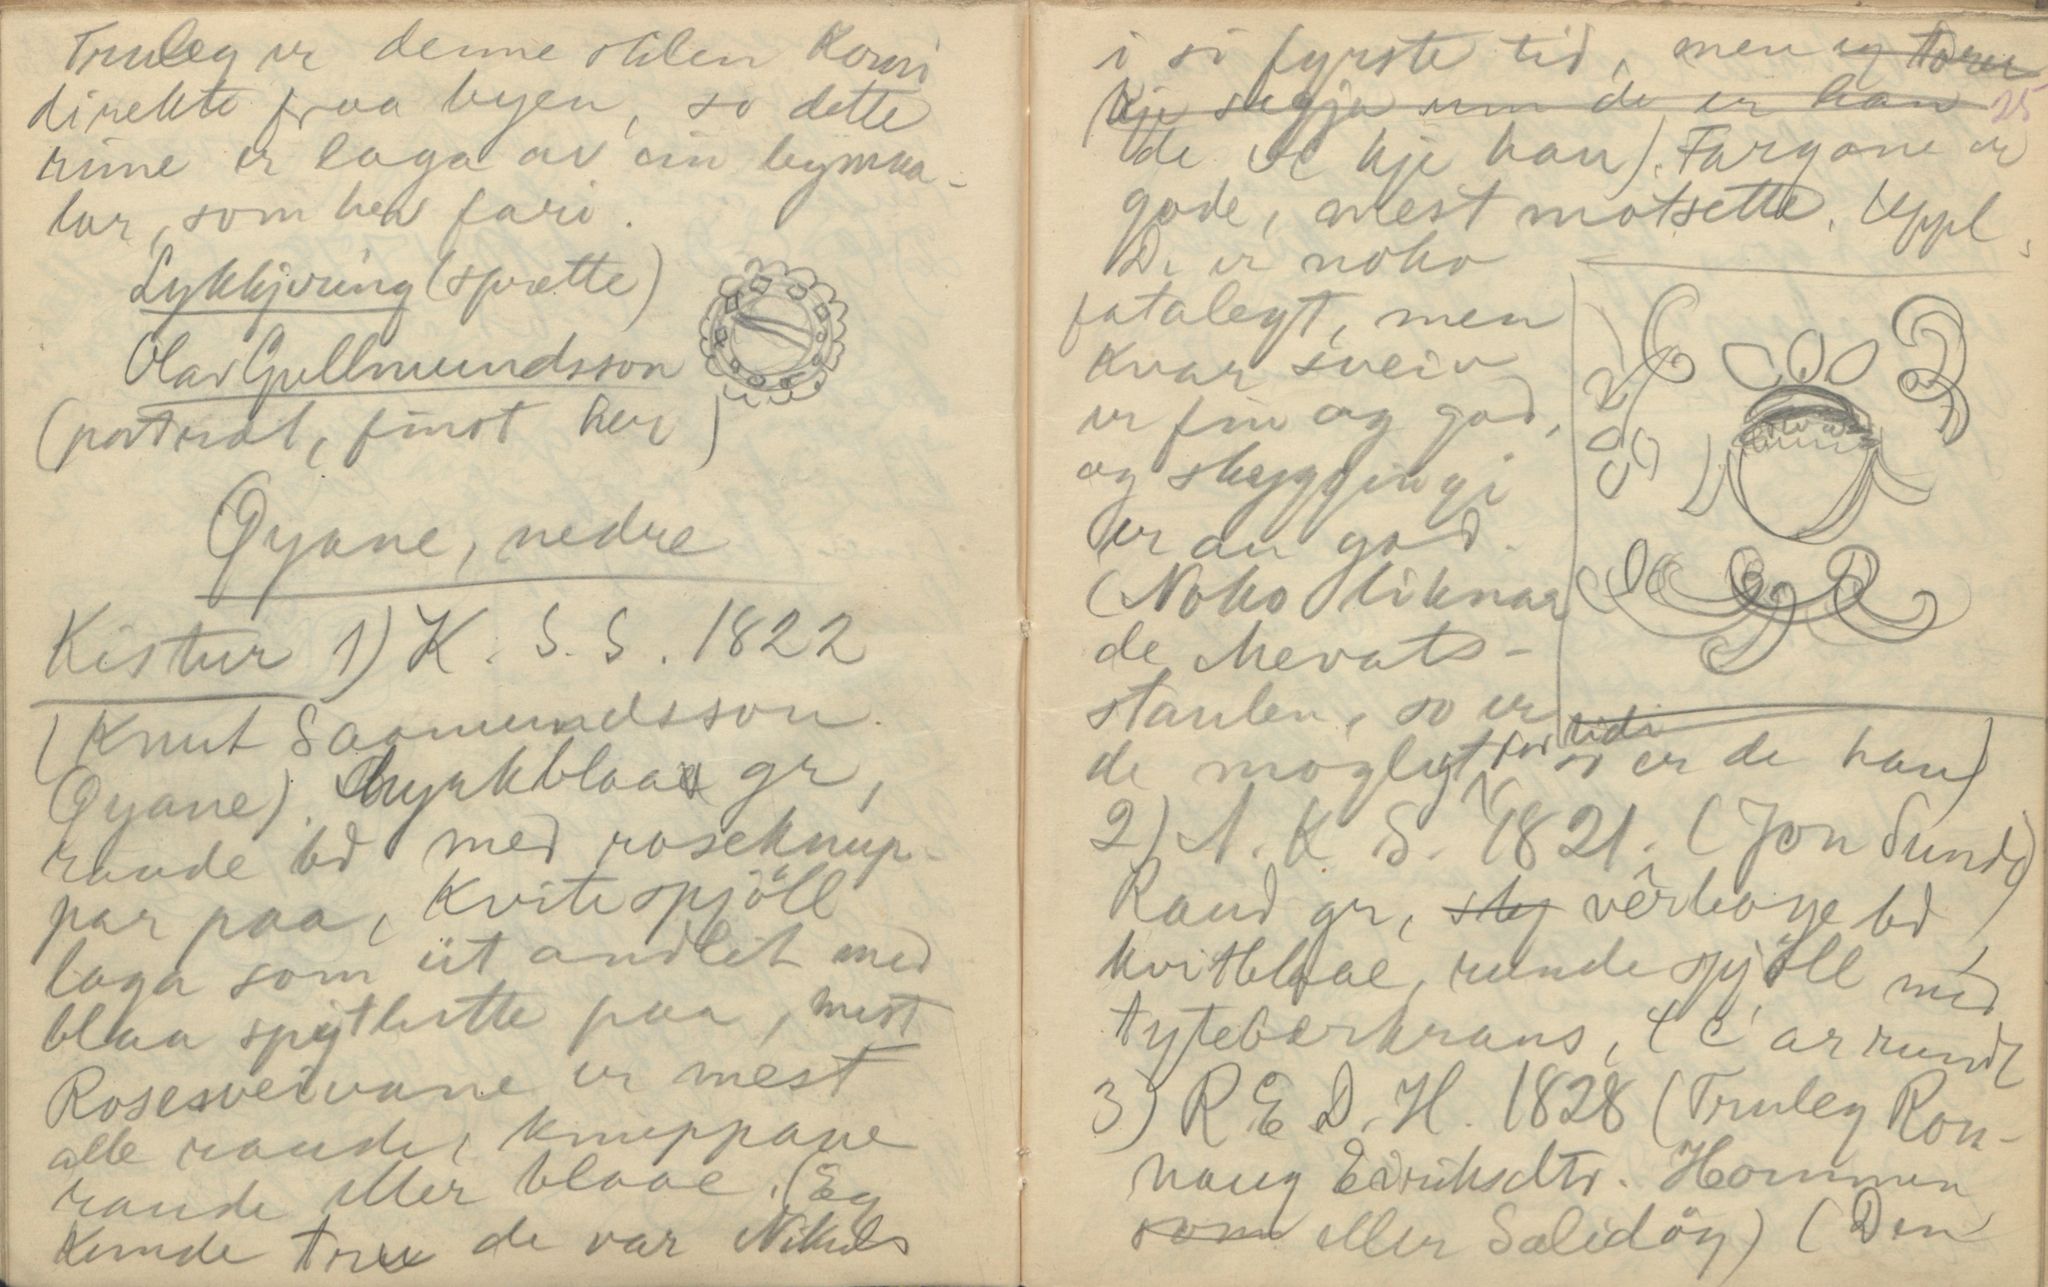 Truleg er denne stilen komi
direkte fraa byen, so dette
rime er laga av ein bymaa-
lar, som hev fari.
Lykkjering (sprette)
Olav Gullmundsson
(portræt, finst her)
Øyane, nedre
Kistur 1) K. S. S. 1822
(Knut Saamundsson
Øyane). Myrkblaa gr,
raude bd med roseknup-
par paa, kvite spjöll
laga som eit andlit med
blaa spisthette paa, mest
Rosesveivane er mest
alle raude, knuppane
raude eller blaae. (Eg
kunde tru de var Nikuls
i si fyrste tid, men eg toree
kje segja um de er han 25
de er kje han). Fargane er
gode, mest motsette. Uppl.
De er noko
fatalegt, men
kvar sveiv
er fin og god,
og skyggingi
er au god.
(Noko liknar
de Mevats-
staulen, so er
de moglegt for tidi er de han)
2) A. K. S. 1821. (Jon Sunde)
Raud gr, sky vêrboge bd
kvitblaae, runde spjöll med
tyteberkrans, C C ar rundt
3) R E D. H. 1828 (Truleg Ron-
naug Eiriksdtr. Hommen
som eller Salidøy) (Den